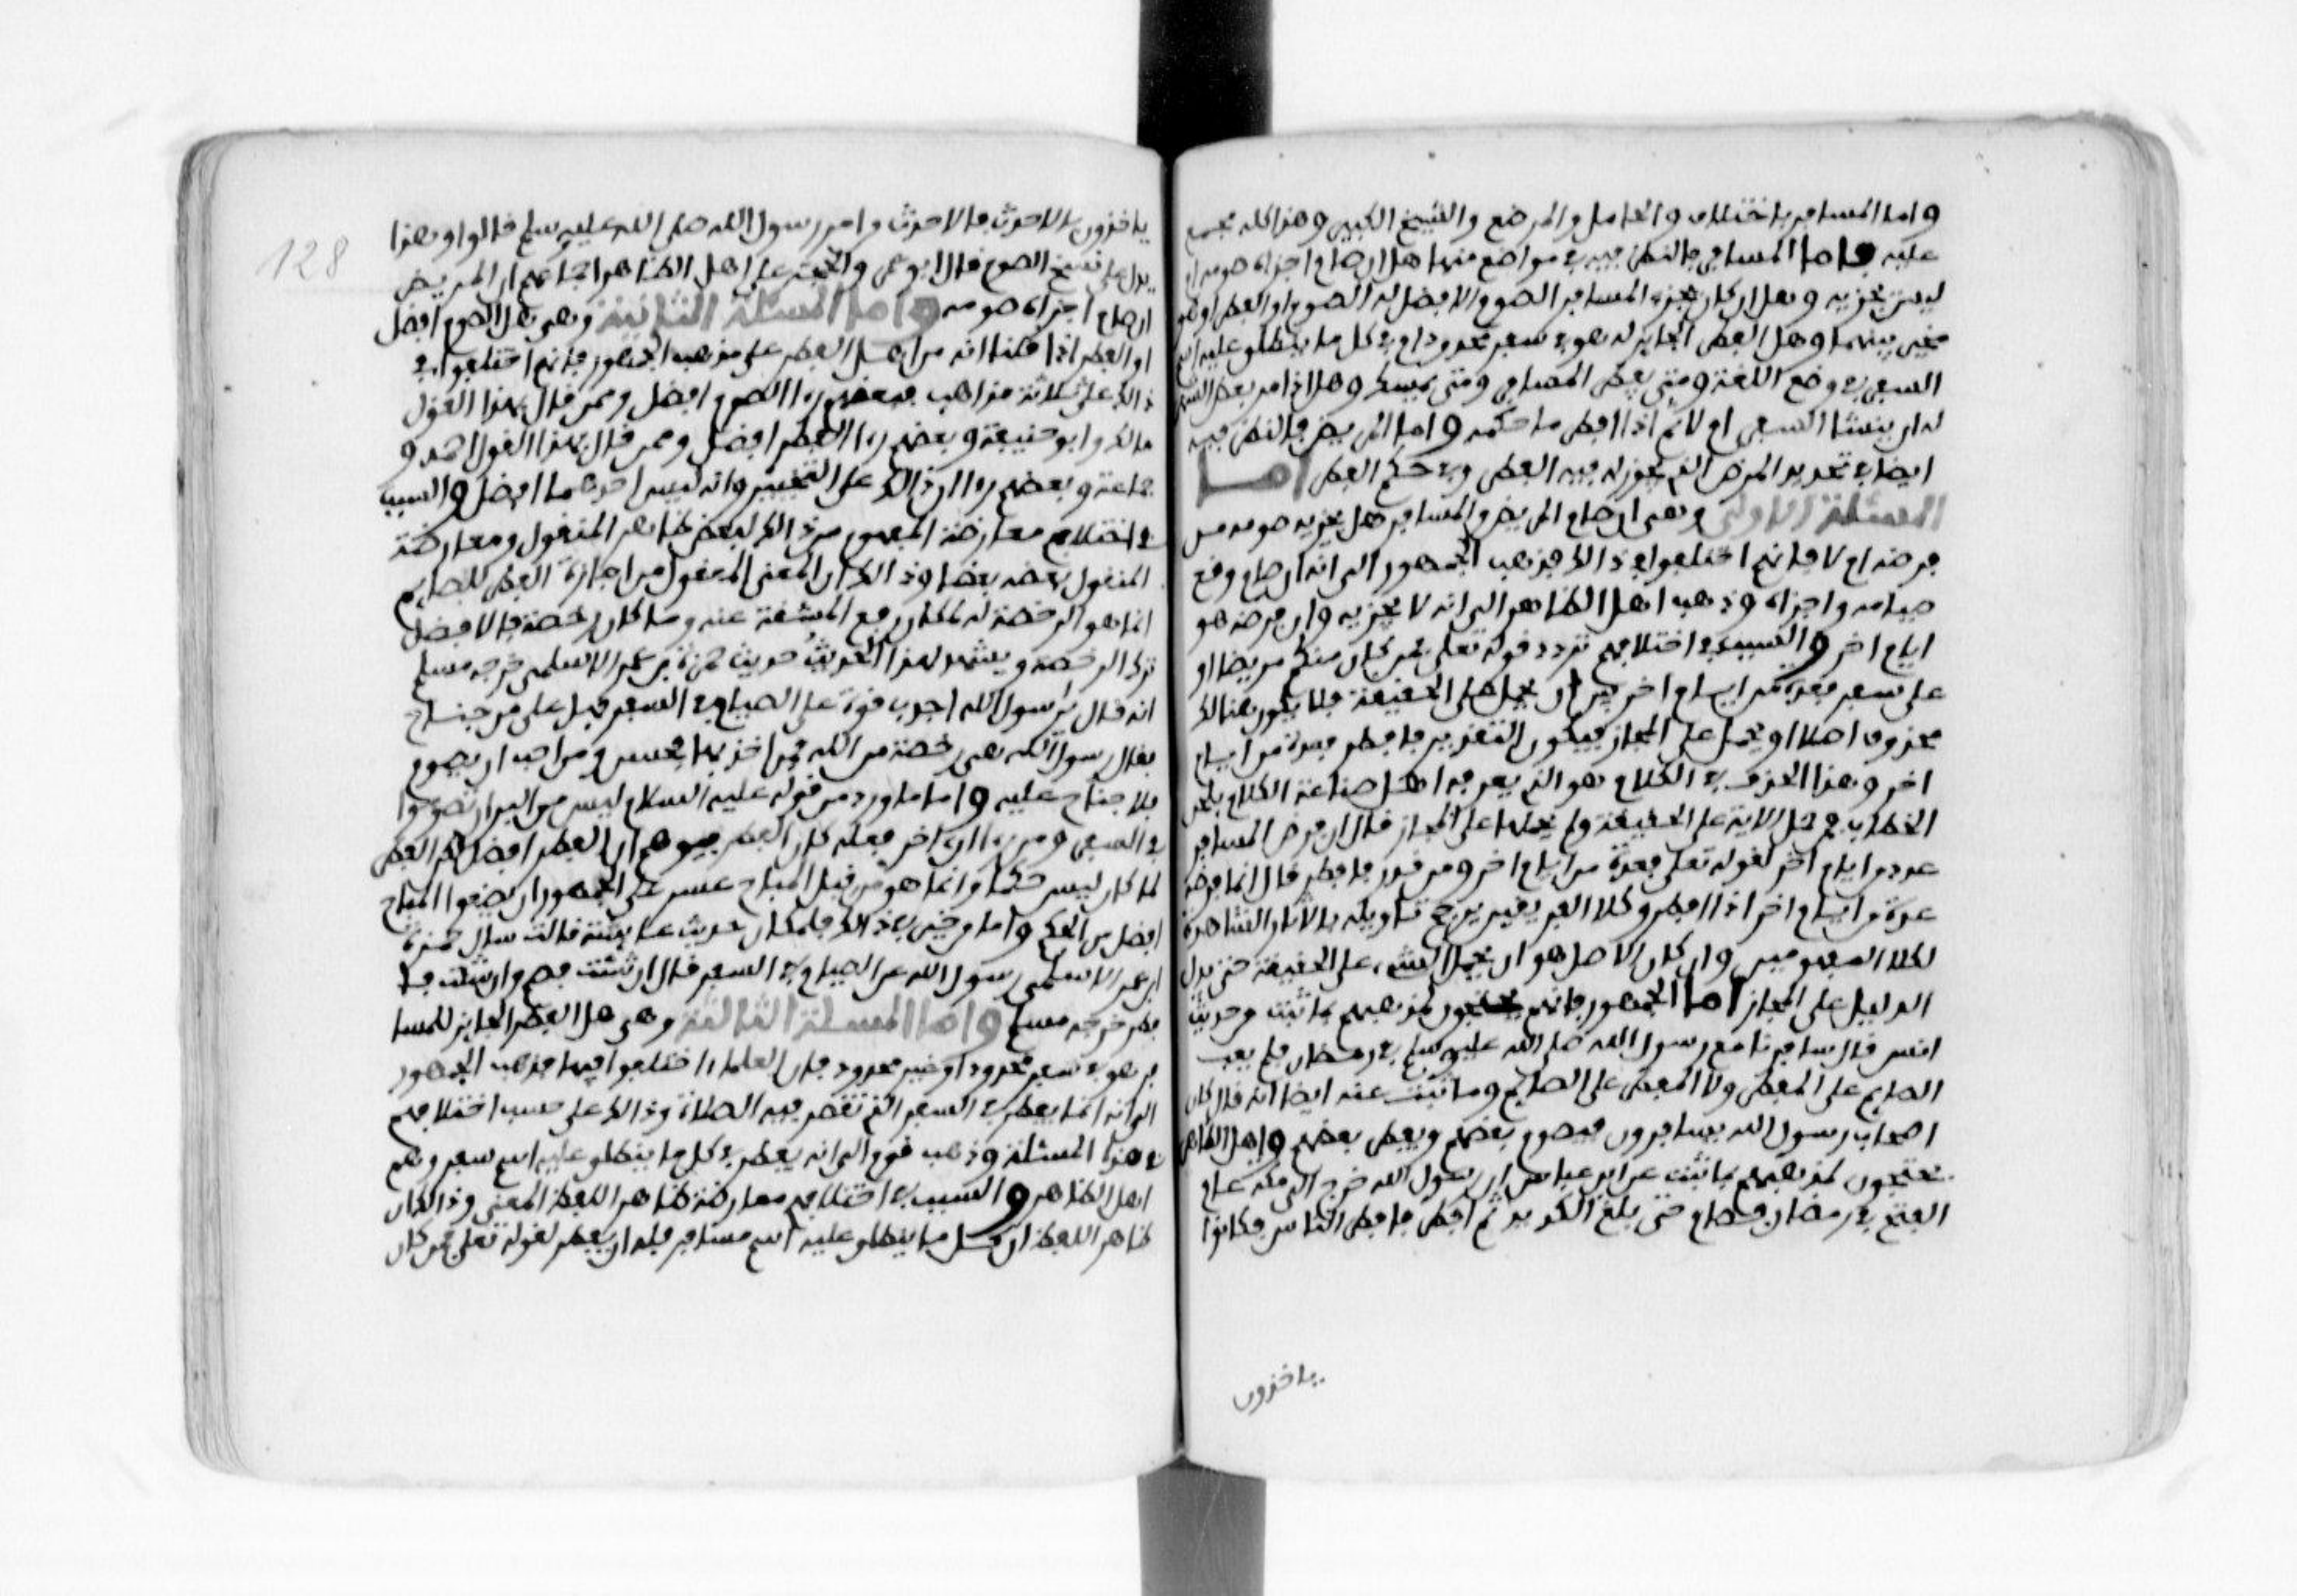 واما المسافر باختلاف والحامل والمرضع والشيخ الكبير وهذا كله مجمع
عليه واما المسافر فالنظر فيه في مواضع منها هل ان صام اجزاه صومه ام
ليس يجزيه وهل ان كان يجزء المسافر الصوم الافضل له الصوم او الفطر او هو
مخير بينهما وهل الفطر الجايز له هو في سفر محدود ام في كل ما ينطلق عليه اسم
السفر في وضع اللغة ومتى يفطر المسافر ومتى يمسك وهل اذا مر بعض الشهر
له ان ينشا السفر ام لا ثم اذا افطر ما حكمه واما المريض فالنظر فيه
ايضا في تحديد المرض الذي يجوز له فيه الفطر وفي حكم الفطر اما
المسئلة الاولى وهى ان صام المريض والمسافر هل يجزيه صومه من
فرضه ام لا فانهم اختلفوا في ذالك فذهب الجمهور الى انه ان صام وقع
صيامه واجزاه وذهب اهل الظاهر الى انه لا يجزيه وان فرضه هو
ايام اخر والسبب في اختلافهم تردد قوله تعلى فمن كان منكم مريضا او
على سفر فعدة من ايام اخر بين ان يحمل على الحقيقة فلا يكون هنالك
محذوف اصلا او يحمل على المجاز فيكون التقدير فافطر فعدة من ايام
اخر وهذا الحذف في الكلام هو الذي يعرفه اهل صناعة الكلام بلحن
الخطاب فمن حمل الاية على الحقيقة ولم يحملها على المجاز قال ان فرض المسافر
عدة من ايام اخر لقوله تعلى فعدة من ايام اخر ومن قدر فافطر قال انما فرضه
عدة من ايام اخر اذا افطر وكلا الفريقين يرجح تاويله بالاثار الشاهدة
لكلا المفهومين وان كان الاصل هو ان يحمل الشيء على الحقيقة حتى يدل
الدليل على المجاز اما الجمهور فانهم يحتجون لمذهبهم بما ثبت من حديث
انس قال سافرنا مع رسول الله صلى الله عليه وسلم في رمضان فلم يعب
الصايم على المفطر ولا المفطر على الصايم وما ثبت عنه ايضا انه قال كان
اصحاب رسول الله يسافرون فيصوم بعضهم ويفطر بعضهم واهل الظاهر
يحتجون لمذهبهم بما ثبت عن ابن عباس ان رسول الله خرج الى مكة عام
الفتح في رمضان فصام حتى بلغ الكديد ثم افطر فافطر الناس فكانوا
ياخذون
128
ياخذون بالاحدث فالاحدث من امر رسول الله صلى الله عليه وسلم قالوا وهذا
يدل على نسخ الصوم قال ابو عمر والحجة على اهل الظاهر اجماعهم ان المريض
ان صام اجزاه صومه واما المسئلة الثانية وهى هل الصوم افضل
او الفطر اذا قلنا انه من اهل الفطر على مذهب الجمهور فانهم اختلفوا في
ذالك على ثلاثة مذاهب فبعضهم رءا الصوم افضل وممن قال بهذا القول
مالك وابو حنيفة وبعضهم رءا الفطر افضل وممن قال بهذا القول احمد و
جماعة وبعضهم رءا ان ذالك على التخيير وانه ليس احدهما افضل والسبب
في اختلافهم معارضة المفهوم من ذالك لبعض ظاهر المنقول ومعارضة
المنقول بعضه بعضا وذالك ان المعنى المعقول من اجازة الفطر للصايم
انما هو الرخصة له لمكان رفع المشقة عنه وما كان رخصة فالافضل
ترك الرخصة ويشهد لهذا الحديث حديث حمزة بن عمر الاسلمى خرجه مسلم
انه قال يا رسول الله اجد بى قوة على الصيام في السفر فهل على من جناح
فقال رسول الله هى رخصة من الله فمن اخذ بها فحسن ومن احب ان يصوم
فلا جناح عليه واما ما ورد من قوله عليه السلام ليس من البر ان تصوموا
في السفر ومن ان اخر فعله كان الفطر فيوهم ان الفطر افضل لكن الفطر
لما كان ليس حكما وانما هو من قبل المباح عسر على الجمهور ان يضعوا المباح
افضل من الحكم واما من خير في ذالك فلمكان حديث عايشة قالت سال حمزة
ابن عمر الاسلمى رسول الله عن الصيام في السفر قال ان شئت فصم وان شئت فا
فطر خرجه مسلم واما المسئلة الثالثة وهى هل الفطر الجايز للمسا
فر هو في سفر محدود او غير محدود فان العلماء اختلفوا فيها فذهب الجمهور
الى انه انما يفطر في السفر الذي تقصر فيه الصلاة وذالك على حسب اختلافهم
في هذا المسئلة وذهب قوم الى انه يفطر في كل ما ينطلق عليه اسم سفر وهم
اهل الظاهر والسبب في اختلافهم معارضة ظاهر اللفظ المعنى وذالك ان
ظاهر اللفظ ان كل ما ينطلق عليه اسم مسافر فله ان يفطر لقوله تعلى فمن كان